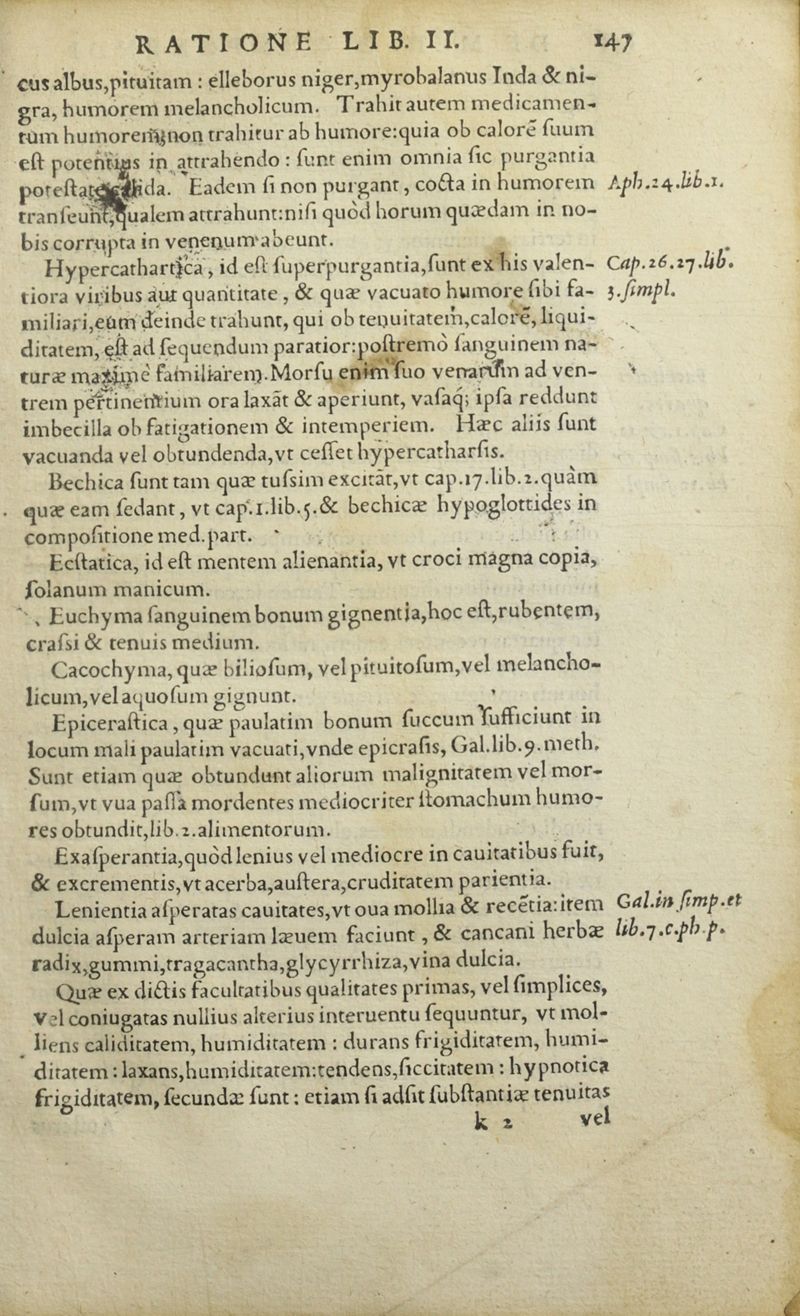 RATIONE LIB. II. 147
cus albus,pituitam : elleborus niger,myrobalanus Inda & ni-
gra, humorem melancholicum. Trahit autem medicamen-
tum humorem,non trahitur ab humore:quia ob calorē suum
est potentius in attrahendo : sunt enim omnia sic purgantia
potestate calida. Eadem si non purgant, cocta in humorem Aph.24.lib.1.
transeunt,qualem attrahunt:nisi quòd horum quædam in no-
bis corrupta in venenum abeunt.
Hypercathartica, id est superpurgantia,sunt ex his valen- Cap.26.27.lib.
tiora viribus aut quantitate, & quæ vacuato humore sibi fa- 3.simpl.
miliari,eum deinde trahunt, qui ob tenuitatem,calorē, liqui-
ditatem, est ad sequendum paratior:postremò sanguinem na-
turæ maximè familiarem.Morsu enim suo venarum ad ven-
trem pertinentium ora laxāt & aperiunt, vasaq; ipsa reddunt
imbecilla ob fatigationem & intemperiem. Hæc aliis sunt
vacuanda vel obtundenda,vt cesset hypercatharsis.
Bechica sunt tam quæ tussim excitāt,vt cap.17.lib.2.quàm
quæ eam sedant, vt cap.1.lib.5.& bechicæ hypoglottides in
compositione med.part.
Ecstatica, id est mentem alienantia, vt croci magna copia,
solanum manicum.
Euchyma sanguinem bonum gignentia,hoc est,rubentem,
crassi & tenuis medium.
Cacochyma, quæ biliosum, vel pituitosum,vel melancho-
licum,vel aquosum gignunt.
Epicerastica, quæ paulatim bonum succum sufficiunt in
locum mali paulatim vacuati,vnde epicrasis, Gal.lib.9.meth.
Sunt etiam quæ obtundunt aliorum malignitatem vel mor-
sum,vt vua passa mordentes mediocriter stomachum humo-
res obtundit,lib.2.alimentorum.
Exasperantia,quòd lenius vel mediocre in cauitatibus fuit,
& excrementis,vt acerba,austera,cruditatem parientia.
Lenientia asperatas cauitates,vt oua mollia & recētia:item Gal.in simp.et
dulcia asperam arteriam læuem faciunt, & cancani herbæ lib.7.c.ph.p.
radix,gummi,tragacantha,glycyrrhiza,vina dulcia.
Quæ ex dictis facultatibus qualitates primas, vel simplices,
vel coniugatas nullius alterius interuentu sequuntur, vt mol-
liens caliditatem, humiditatem : durans frigiditatem, humi-
ditatem : laxans,humiditatem:tendens,siccitatem : hypnotica
frigiditatem, secundæ sunt : etiam si adsit substantiæ tenuitas
k 2 vel